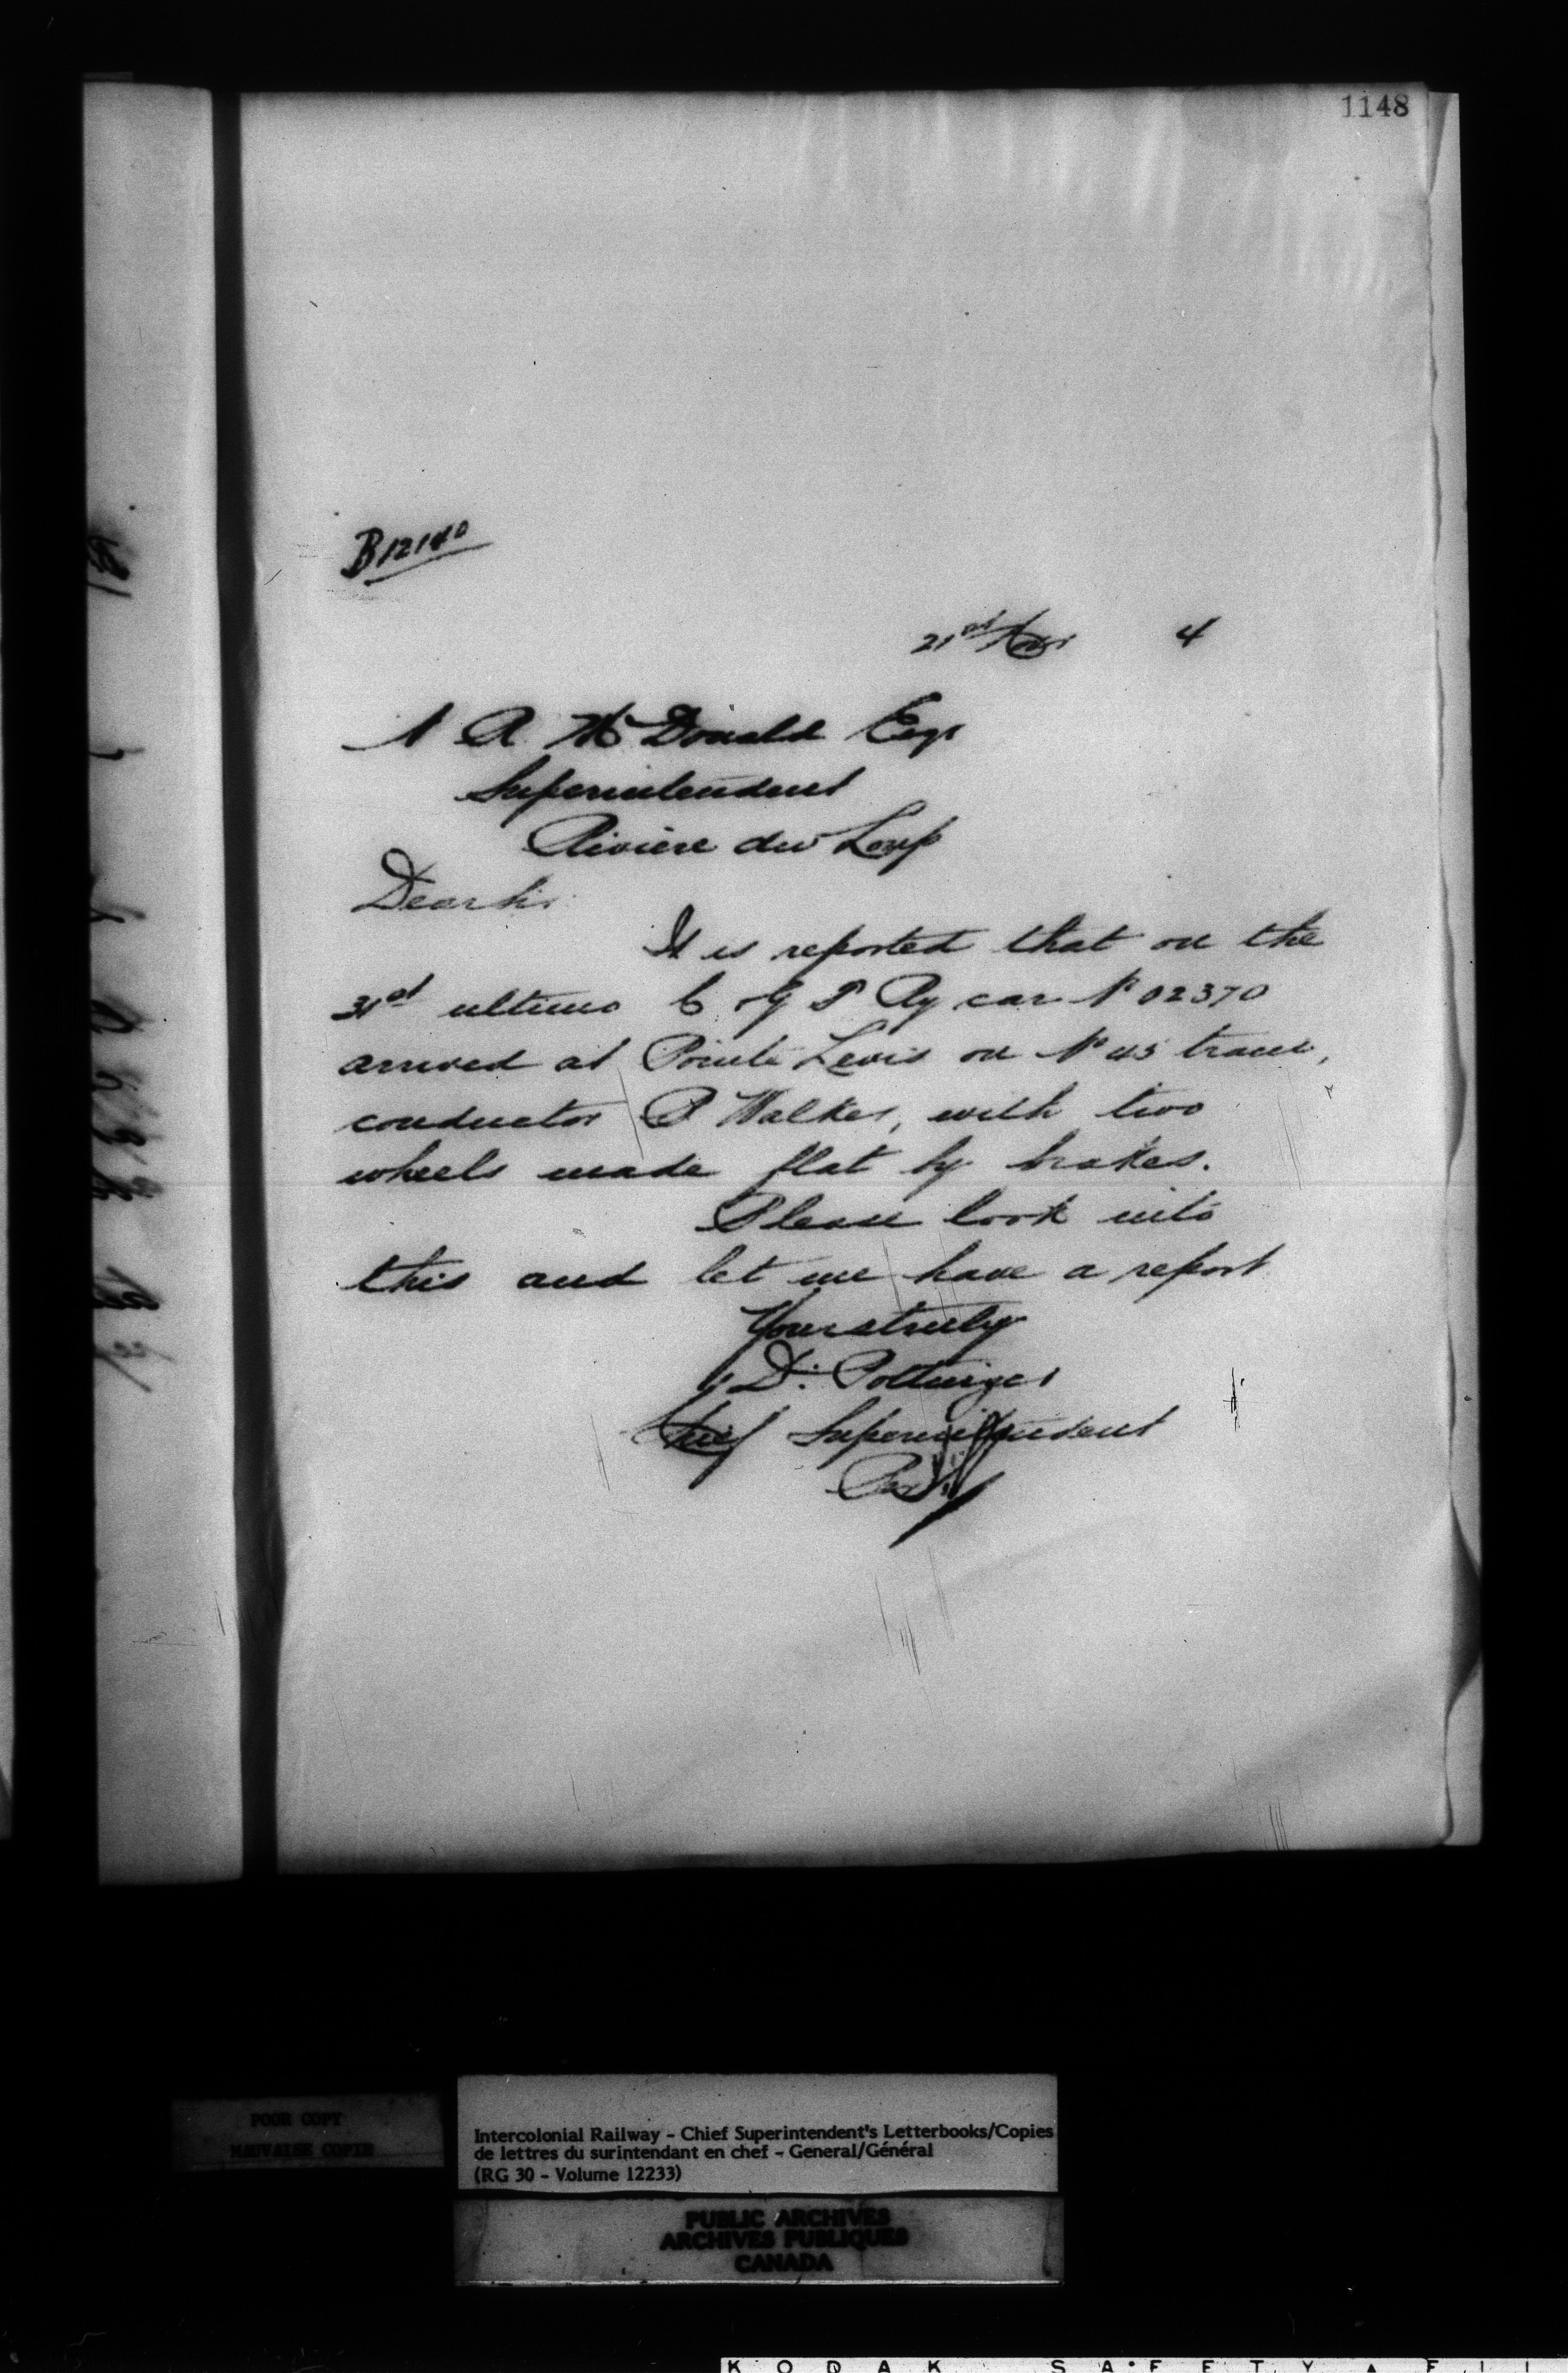 1148
B12140
21st Nov 4
A R McDonald Esqr
Superintendent
Riviere du Loup
Dear Sir
It is reported that on the
31st ultimo C of G T Ry car No 02370
arrived at Pointe Levis on No 45 train,
conductor P Walker, with two
wheels made flat by brakes.
Please look into
this and let me have a report
Yours truly
D. Pottinger
Chief Superintendent
Per
POOR COPY
MAUVAISE COPIE
Intercolonial Railway - Chief Superintendent's Letterbooks/Copies
de lettres du surintendant en chef - General/Général
(RG 30 - Volume 12233)
PUBLIC ARCHIVES
ARCHIVES PUBLIQUES
CANADA
KODAK SAFETY FIL